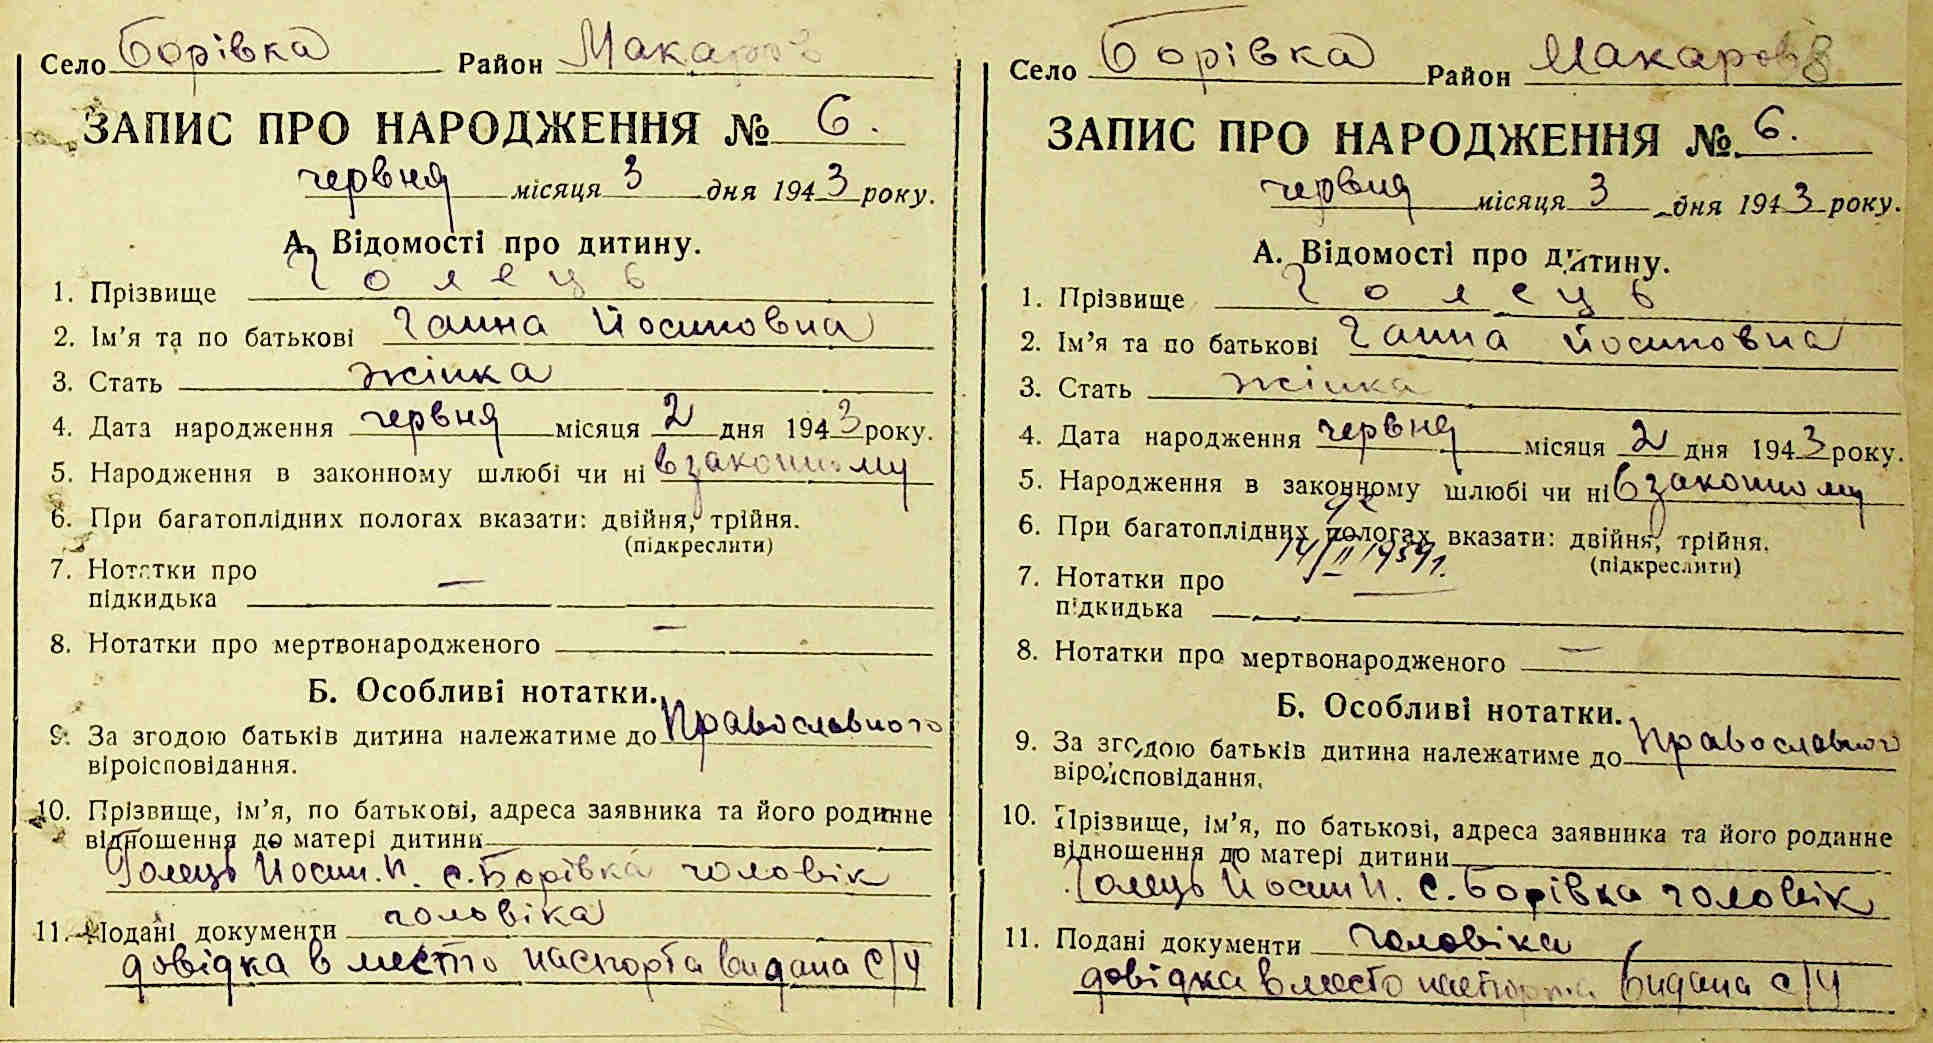 Село Борівка Район Макаров
ЗАПИС ПРО НАРОДЖЕННЯ № 6.
червня місяця 3 дня 1943 року.
А. Відомості про дитину.
1. Прізвище Голець
2. Ім'я та по батькові Ганна Йосиповна
3. Стать жінка
4. Дата народження червня місяця 2 дня 1943 року.
5. Народження в законному шлюбі чи ні в законному
6. При багатоплідних пологах вказати: двійня, трійня.
(підкреслити)
7. Нотатки про
підкидька —
8. Нотатки про мертвонародженого —
Б. Особливі нотатки.
9. За згодою батьків дитина належатиме до Православного
віроісповідання.
10. Прізвище, ім'я, по батькові, адреса заявника та його родинне
відношення до матері дитини
Голець Йосип. П. с. Борівка чоловік
11. Подані документи чоловіка
довідка вместо паспорта видана с/у
Село Борівка Район Макаров
ЗАПИС ПРО НАРОДЖЕННЯ № 6.
червня місяця 3 дня 1943 року.
А. Відомості про дитину.
1. Прізвище Голець
2. Ім'я та по батькові Ганна Йосиповна
3. Стать жінка
4. Дата народження червня місяця 2 дня 1943 року.
5. Народження в законному шлюбі чи ні в законному
6. При багатоплідних пологах вказати: двійня, трійня.
(підкреслити)
7. Нотатки про
підкидька —
8. Нотатки про мертвонародженого —
Б. Особливі нотатки.
9. За згодою батьків дитина належатиме до Православного
віроісповідання.
10. Прізвище, ім'я, по батькові, адреса заявника та його родинне
відношення до матері дитини
Голець Йосип П. с. Борівка чоловік
11. Подані документи чоловіка
довідка вместо паспорта видана с/у